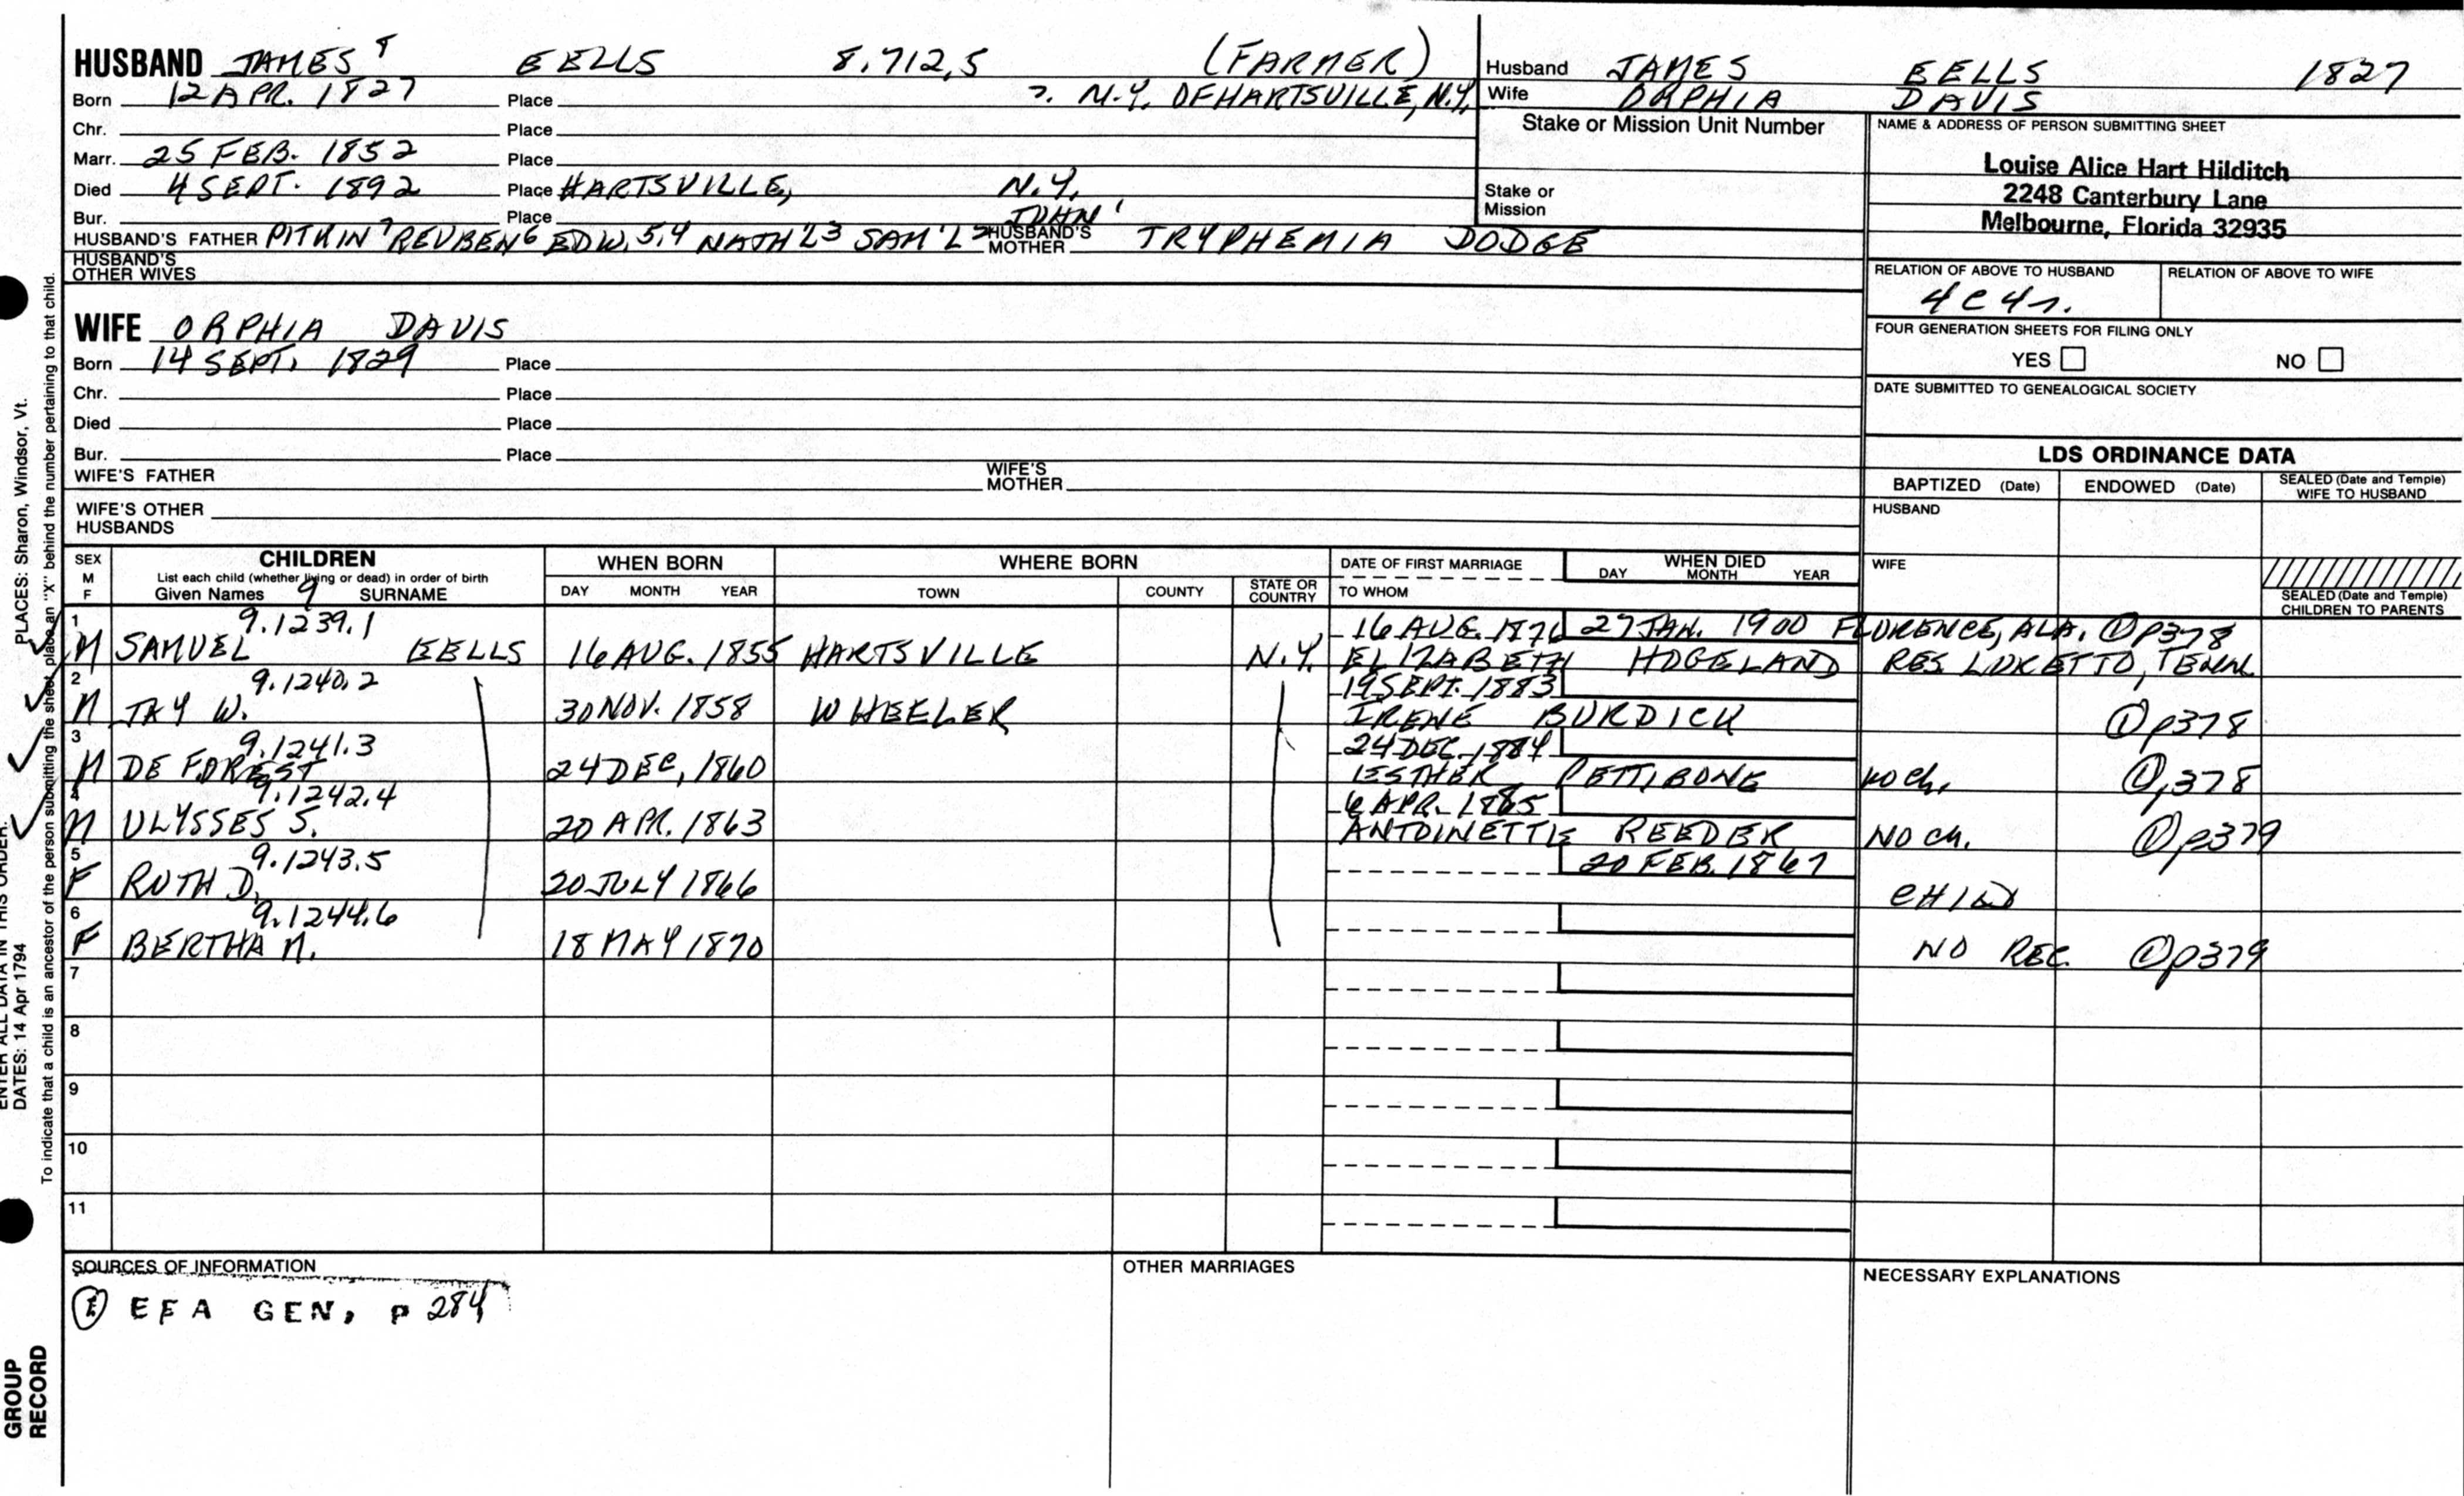 HUSBAND JAMES 8 EELLS 8.712.5 (FARMER)
Born 12 APR. 1827 Place ?. N.Y. OF HARTSVILLE, N.Y.
Chr. Place
Marr. 25 FEB. 1852 Place
Died 4 SEPT. 1892 Place HARTSVILLE, N.Y.
Bur. Place JOHN 1
HUSBAND'S FATHER PITKIN 7 REUBEN 6 EDW. 5,4 NATH'L 3 SAM'L 2 HUSBAND'S MOTHER TRYPHEMIA DODGE
HUSBAND'S OTHER WIVES
Husband JAMES EELLS 1827
Wife ORPHIA DAVIS
Stake or Mission Unit Number
Stake or Mission
NAME & ADDRESS OF PERSON SUBMITTING SHEET
Louise Alice Hart Hilditch
2248 Canterbury Lane
Melbourne, Florida 32935
RELATION OF ABOVE TO HUSBAND RELATION OF ABOVE TO WIFE
4C4r.
FOUR GENERATION SHEETS FOR FILING ONLY
YES NO
DATE SUBMITTED TO GENEALOGICAL SOCIETY
WIFE ORPHIA DAVIS
Born 14 SEPT. 1829 Place
Chr. Place
Died Place
Bur. Place
WIFE'S FATHER WIFE'S MOTHER
WIFE'S OTHER HUSBANDS
LDS ORDINANCE DATA
BAPTIZED (Date) ENDOWED (Date) SEALED (Date and Temple) WIFE TO HUSBAND
HUSBAND
WIFE
SEALED (Date and Temple) CHILDREN TO PARENTS
SEX M F CHILDREN List each child (whether living or dead) in order of birth Given Names 9 SURNAME
WHEN BORN DAY MONTH YEAR
WHERE BORN TOWN COUNTY STATE OR COUNTRY
DATE OF FIRST MARRIAGE TO WHOM
WHEN DIED DAY MONTH YEAR
1 9.1239.1 16 AUG. 1876 27 JAN. 1900 FLORENCE, ALA. ① p378
M SAMUEL EELLS 16 AUG. 1855 HARTSVILLE N.Y. ELIZABETH HOGELAND RES LORETTO, TENN
2 9.1240.2 19 SEPT. 1883
M JAY W. 30 NOV. 1858 WHEELER IRENE BURDICK ① p378
3 9.1241.3 24 DEC. 1884
M DE FOREST 24 DEC. 1860 ESTHER PETTIBONE no ch. ① p378
4 9.1242.4 6 APR. 1885
M ULYSSES S. 20 APR. 1863 ANTOINETTE REEDER NO ch. ① p379
5 9.1243.5 20 FEB. 1867
F RUTH D. 20 JULY 1866 CHILD
6 9.1244.6
F BERTHA M. 18 MAY 1870 NO REC. ① p379
7
8
9
10
11
SOURCES OF INFORMATION
① EFA GEN, P 284
OTHER MARRIAGES
NECESSARY EXPLANATIONS
ENTER ALL DATA IN THIS ORDER:
DATES: 14 Apr 1794 PLACES: Sharon, Windsor, Vt.
To indicate that a child is an ancestor of the person submitting the sheet, place an "X" behind the number pertaining to that child.
GROUP
RECORD